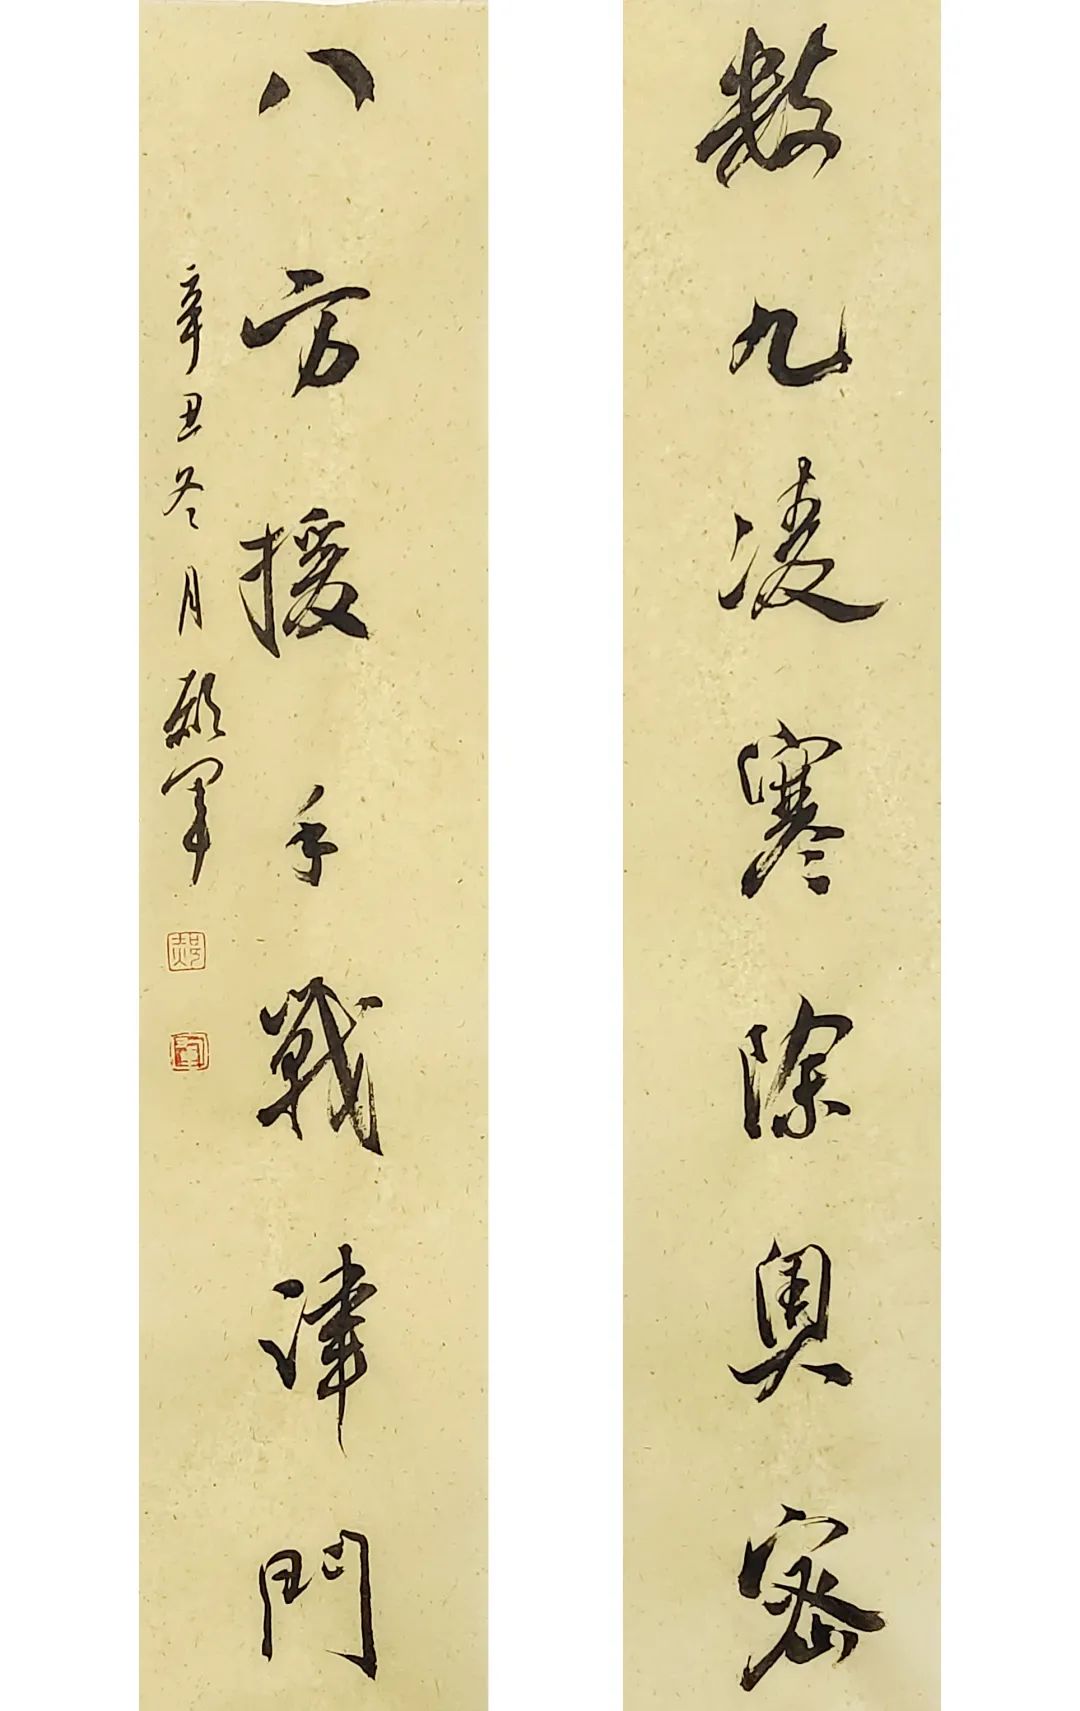 数九凌寒除奥密
八方援手戰津門
辛丑冬月軍